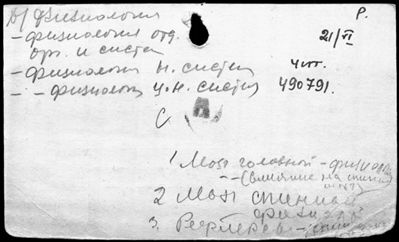 D/ физиология Р.
- физиология отд. 21/VI
орг. и систем
- физиология н. систем чит.
- - физиология ц.н. систем 490791.
С
1 Мозг головной - физиол
- - (влияние на спинн
2 Мозг спинной
физиол
3. Рефлексы -